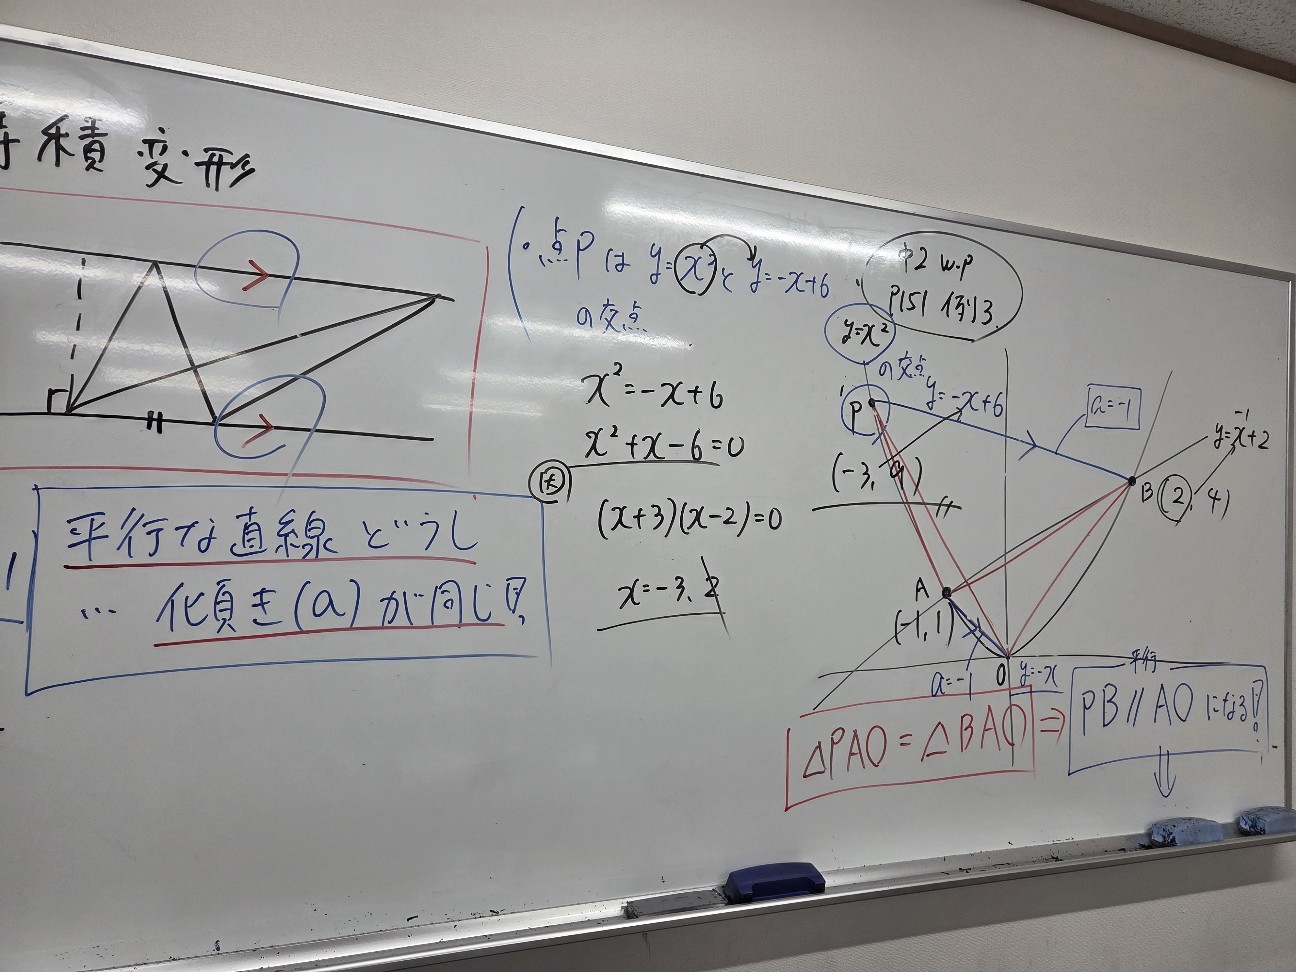 積変形
平行な直線どうし
… 傾き(a)が同じ!
・点Pは y=x²と y=-x+6
の交点
x²=-x+6
x²+x-6=0
(x+3)(x-2)=0
x=-3, 2
中2 W.P
P151 例3.
y=x²
の交点
P
y=-x+6
a=-1
(-3, 9)
y=x+2
B(2, 4)
A
(-1, 1)
a=-1
O
y=-x
△PAO=△BAO
⇒
平行
PB//AOになる!
⇓